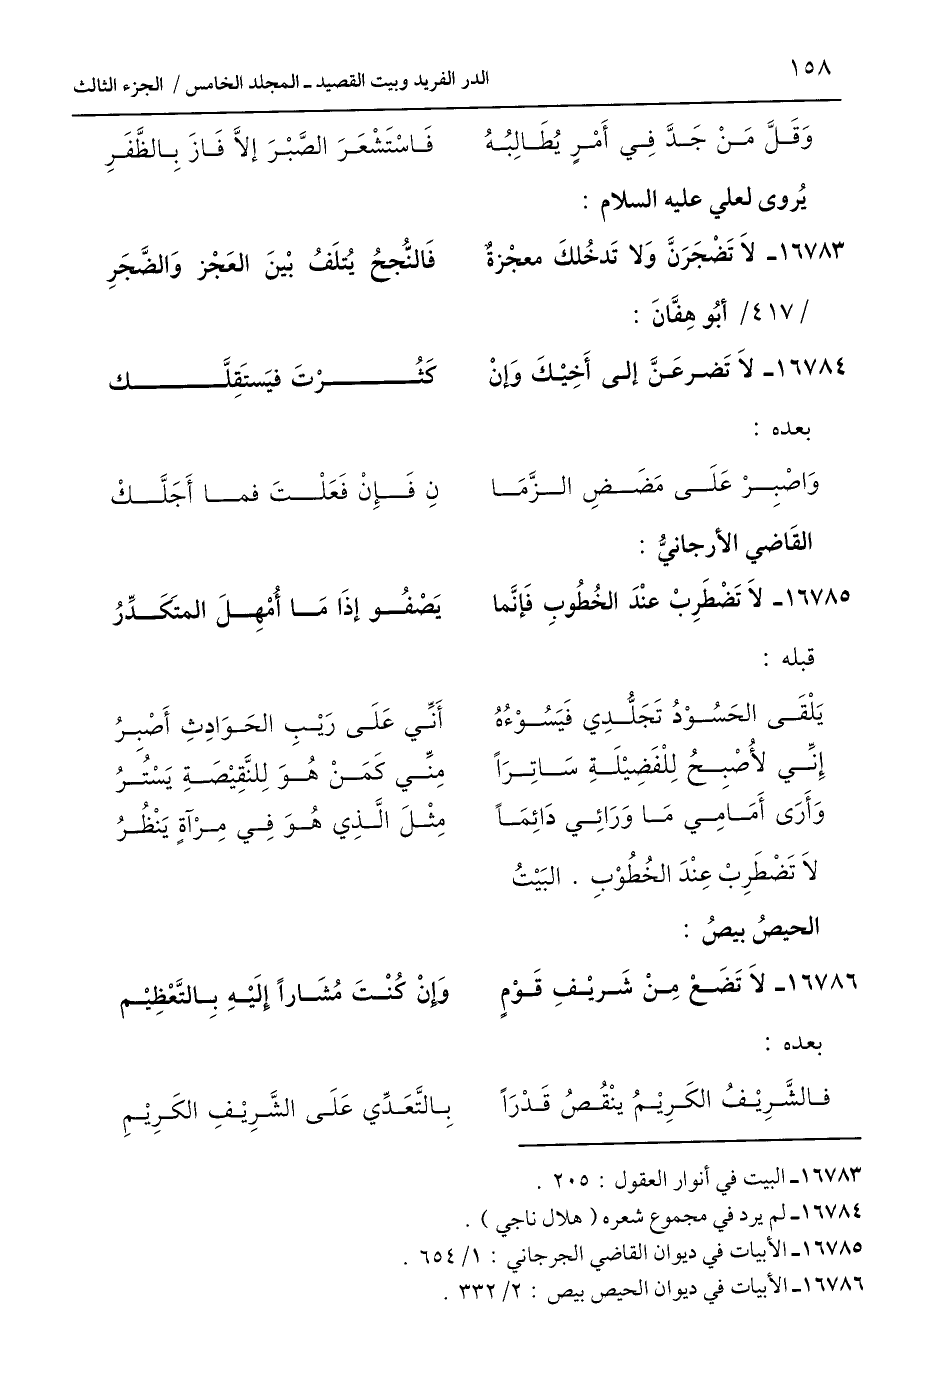 ١٥٨ الدر الفريد وبيت القصيد ـ المجلد الخامس / الجزء الثالث
وَقَلَّ مَنْ جَدَّ فِي أَمْرٍ يُطَالِبُهُ فَاسْتَشْعَرَ الصَّبْرَ إلاَّ فَازَ بِالظَّفَرِ
يُروى لعلي عليه السلام :
١٦٧٨٣ـ لاَ تَضْجَرَنَّ وَلا تَدخُلكَ معجْزةٌ فَالنُّجحُ يُتلَفُ بْينَ العَجْزِ وَالضَّجَرِ
/ ٤١٧/ أبُو هِفَّانَ :
١٦٧٨٤ـ لاَ تَضرعَنَّ إلى أَخِيْكَ وَإنْ كَثُرْتَ فيَستَقِلَّك
بعده :
وَاصْبِرْ عَلَى مَضَضِ الزَّمَا نِ فَإِنْ فَعَلْتَ فما أَجَلَّكْ
القَاضي الأرجانيُّ :
١٦٧٨٥ـ لاَ تَضْطَرِبْ عندَ الخُطُوبِ فَإنَّما يَصْفُو إذَا مَا أُمْهِلَ المتَكَدِّرُ
قبله :
يَلْقَى الحَسُوْدُ تَجَلُّدِي فَيَسُوْءُهُ أَنِّي عَلَى رَيْبِ الحَوَادِثِ أَصْبِرُ
إنِّي لأُصْبِحُ لِلْفَضِيْلَةِ سَاتِرَاً مِنِّي كَمَنْ هُوَ لِلنَّقِيْصَةِ يَسْتُرُ
وَأَرَى أَمَامِي مَا وَرَائِي دَائِمَاً مِثْلَ الَّذِي هُوَ فِي مِرْآةٍ يَنْظُرُ
لاَ تَضْطَرِبْ عِنْدَ الخُطُوْبِ . البَيْتُ
الحيصُ بيصُ :
١٦٧٨٦ـ لاَ تَضَعْ مِنْ شَرِيْفِ قَوْمٍ وَإنْ كُنْتَ مُشَاراً إلَيْهِ بِالتَّعْظِيْم
بعده :
فالشَّرِيْفُ الكَرِيْمُ يَنْقُصُ قَدْرَاً بِالتَّعَدِّي عَلَى الشَّرِيْفِ الكَرِيْمِ
١٦٧٨٣ـ البيت في أنوار العقول : ٢٠٥ .
١٦٧٨٤ـ لم يرد في مجموع شعره ( هلال ناجي ) .
١٦٧٨٥ـ الأبيات في ديوان القاضي الجرجاني : ١/ ٦٥٤ .
١٦٧٨٦ـ الأبيات في ديوان الحيص بيص : ٢/ ٣٣٢ .